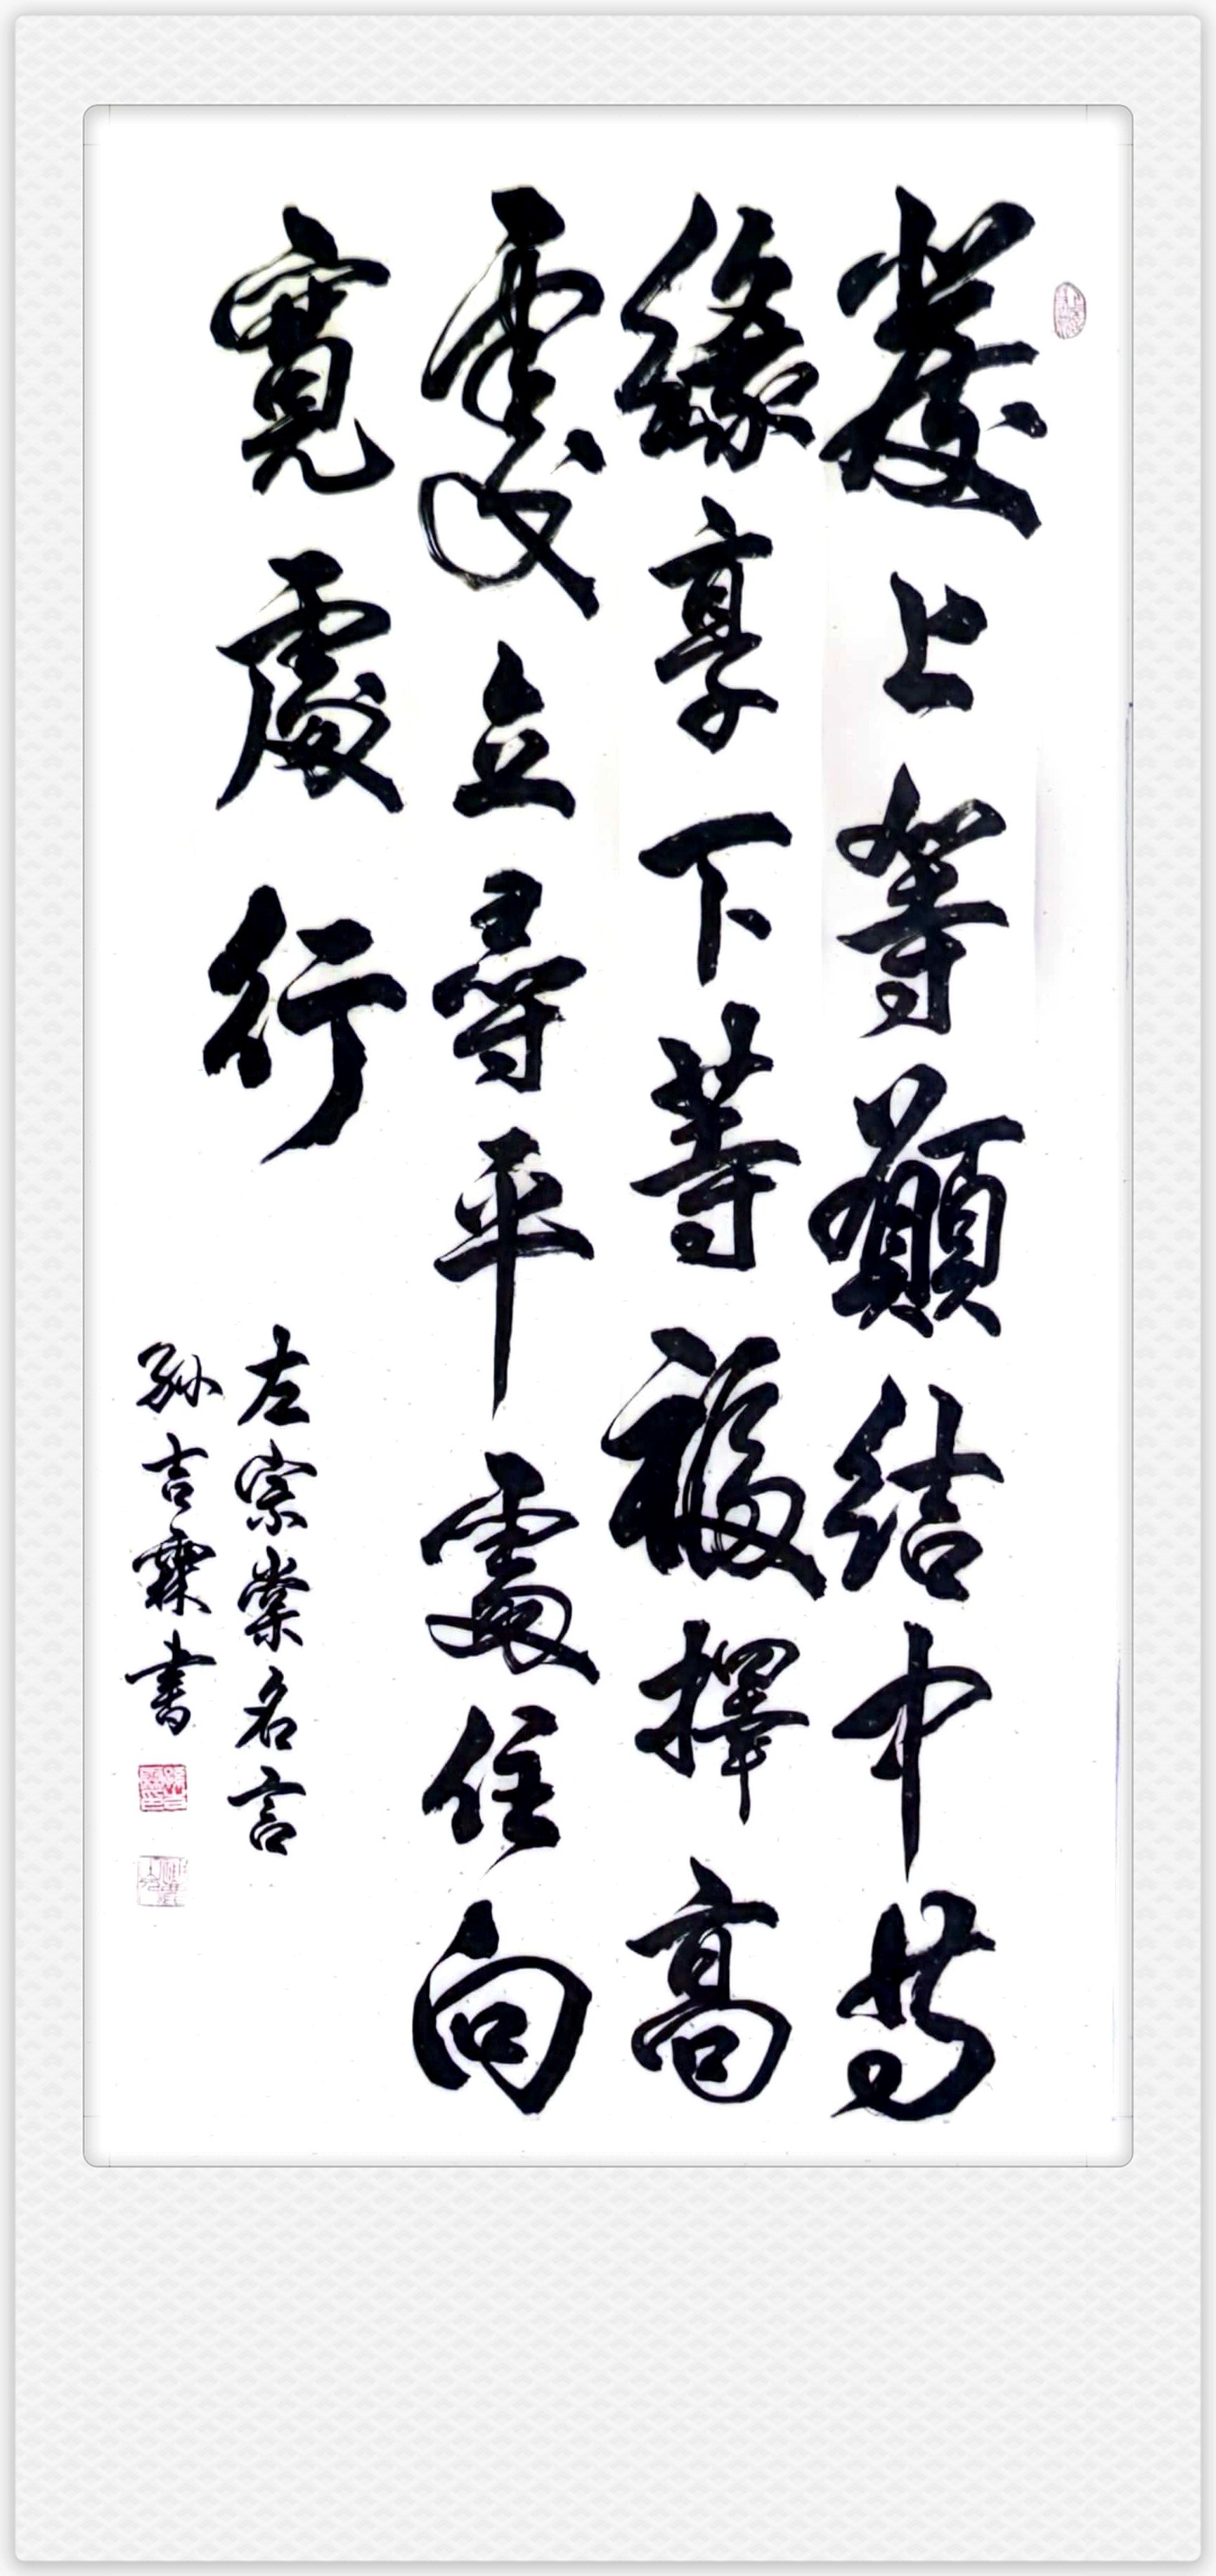 發上等願結中等
緣享下等福擇高
處立尋平處住向
寬處行
左宗棠名言
孫吉霖書